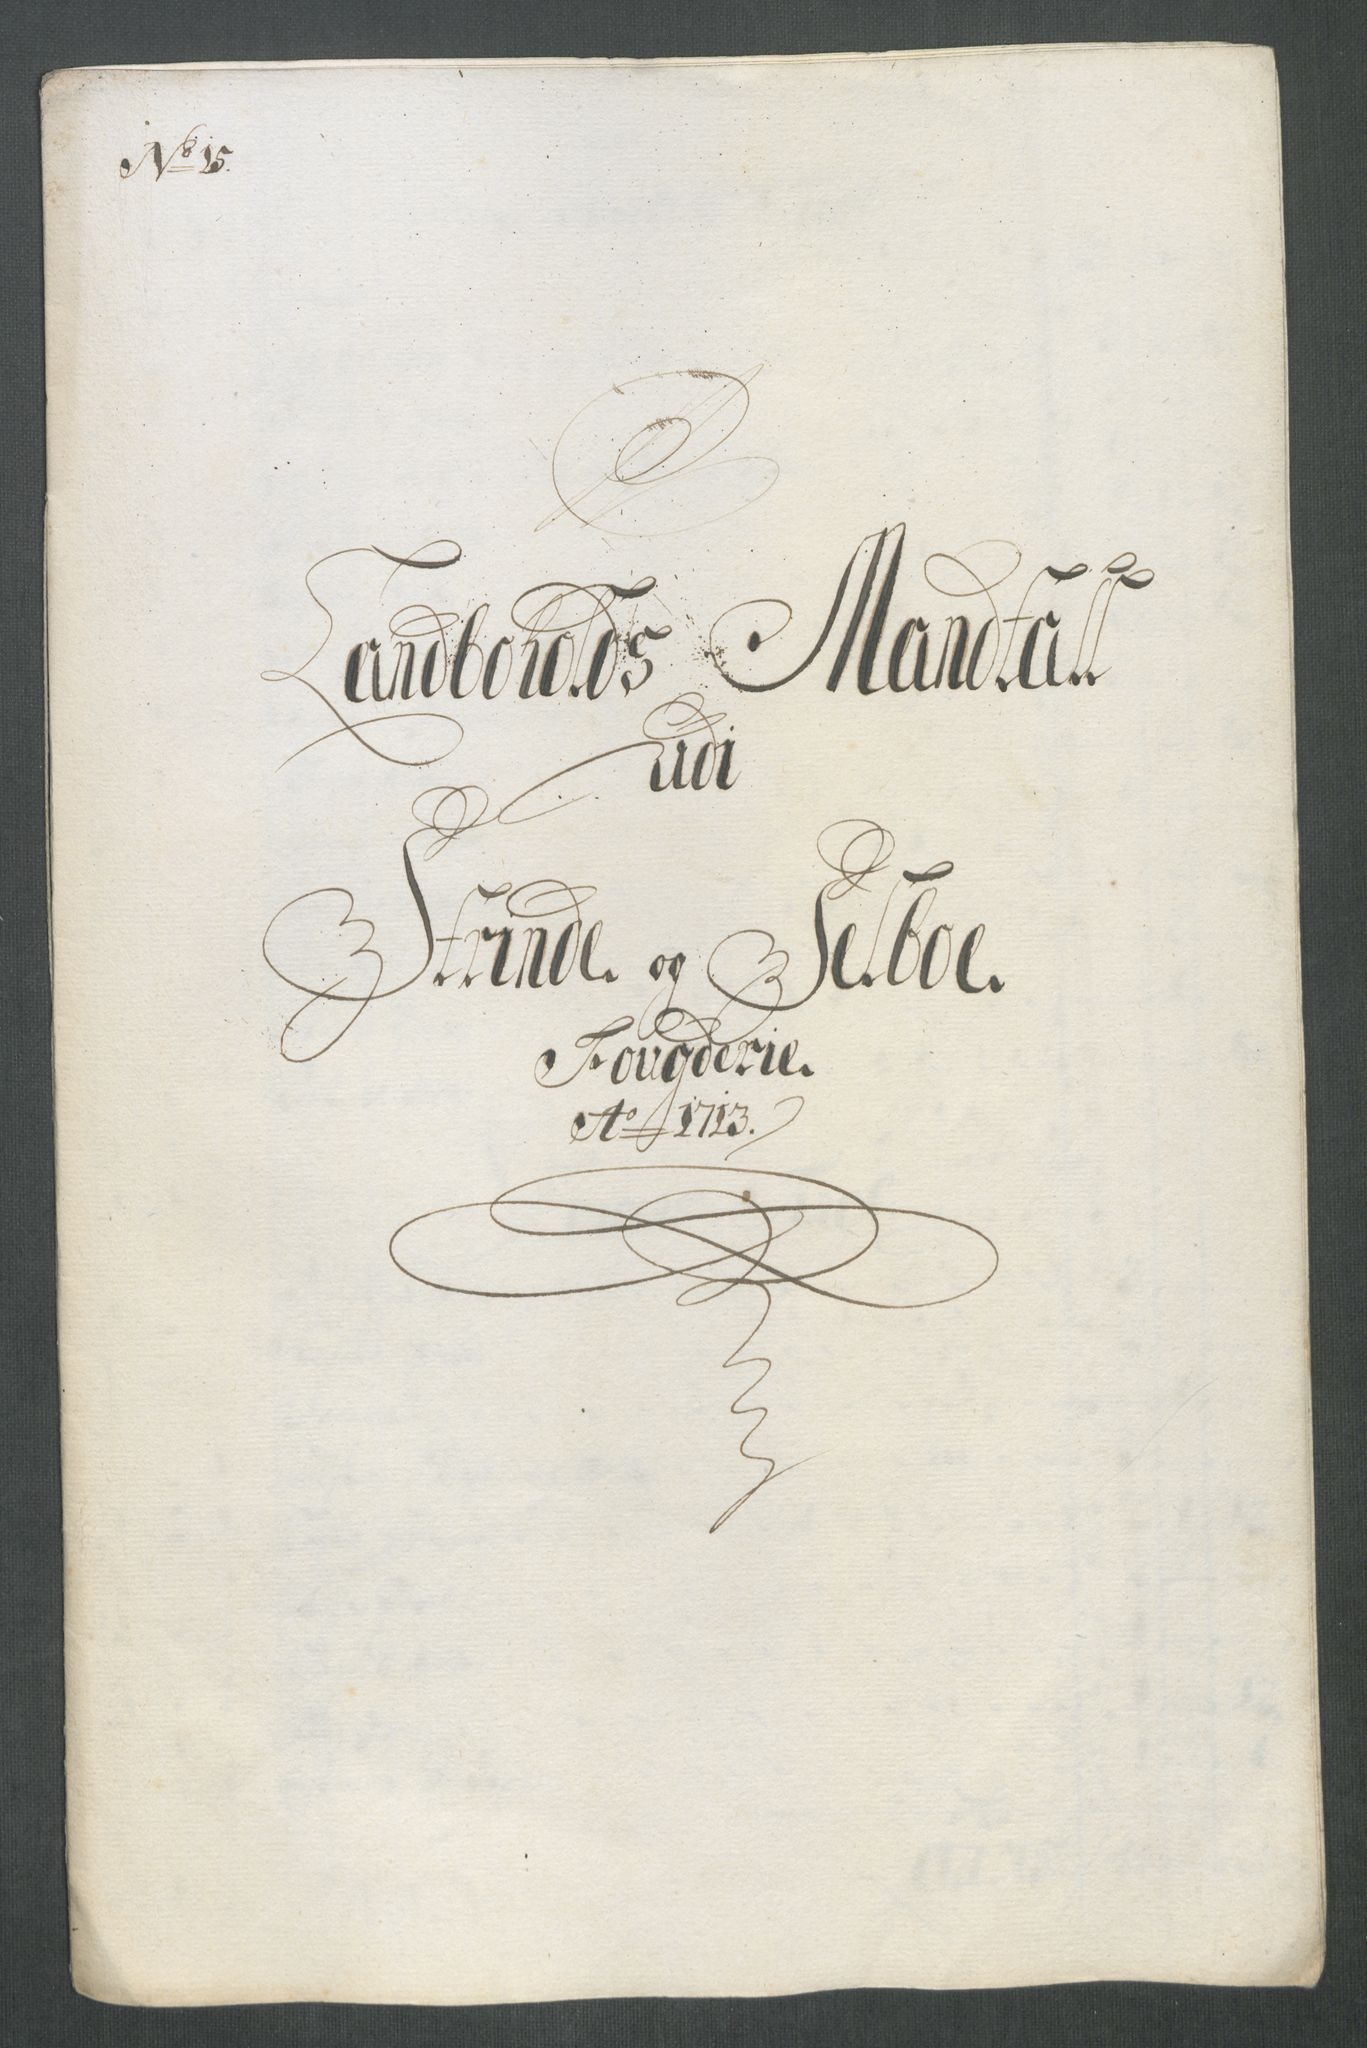 No 15.
Landboholds Mandtall
udi
Strinde. og Selboe.
Fougderie.
Ao 1713.